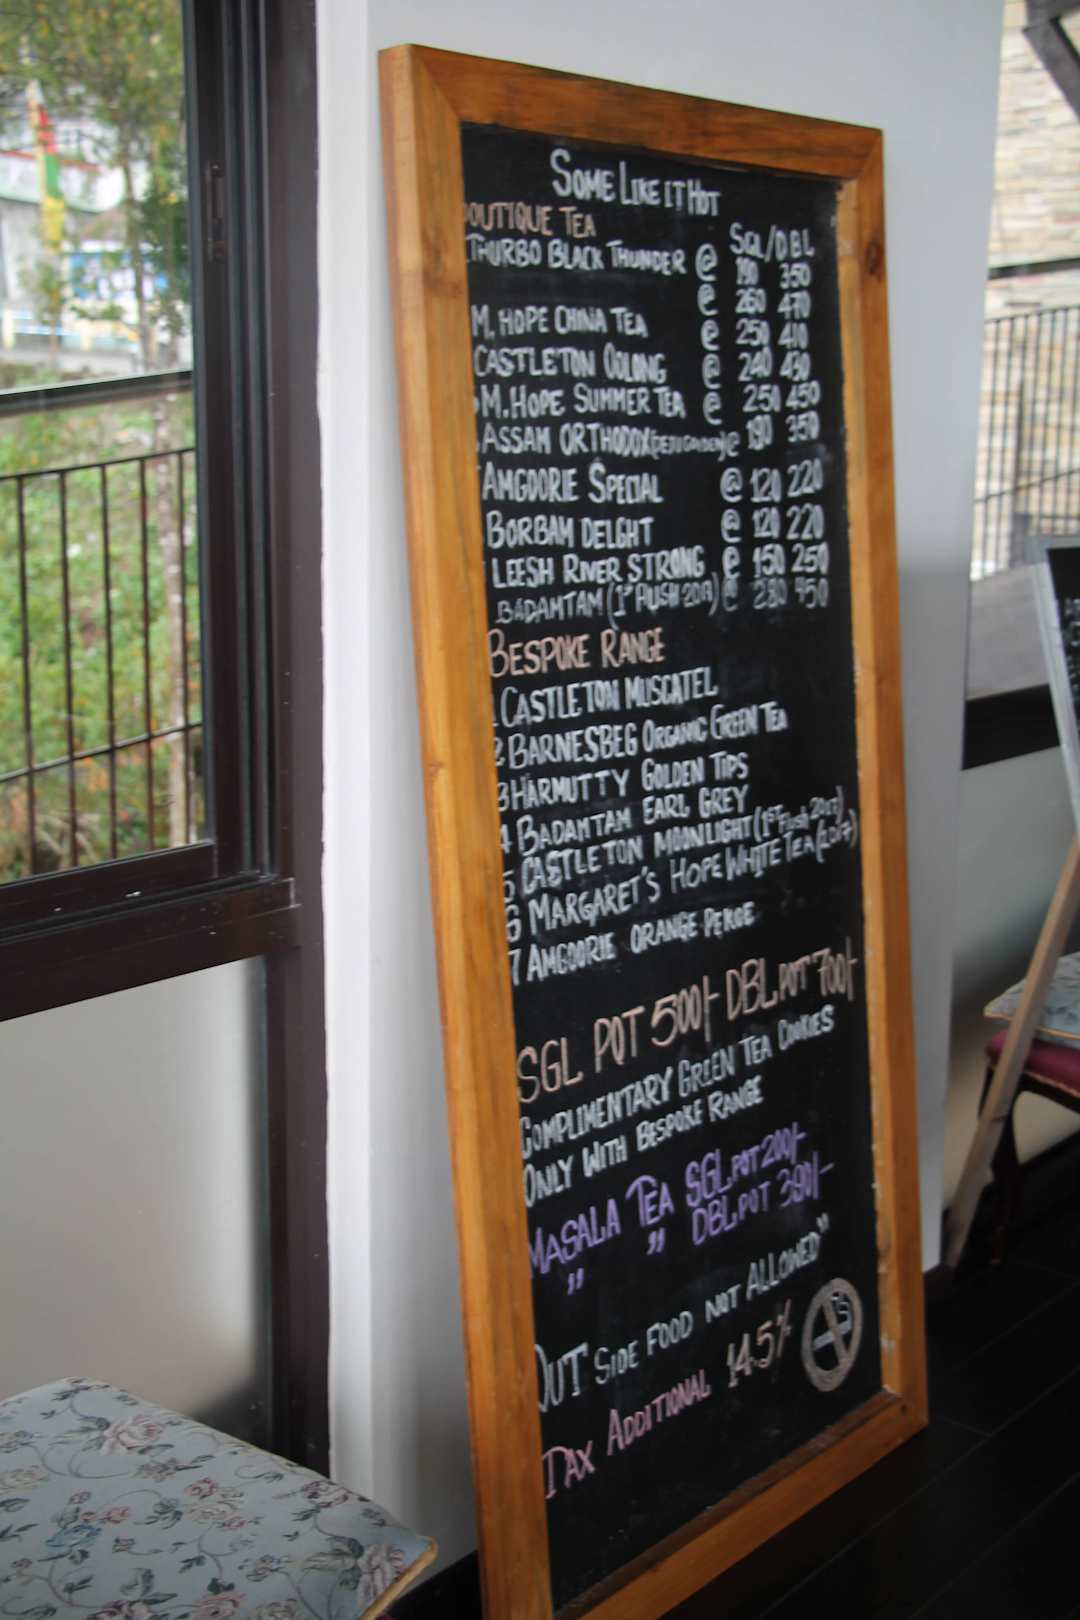 SOME LIKE IT HOT
OUTIQUE TEA SGL/DBL
THURBO BLACK THUNDER @ 190 350
@ 260 470
M. HOPE CHINA TEA @ 250 410
CASTLETON OOLONG @ 240 430
M. HOPE SUMMER TEA @ 250 450
ASSAM ORTHODOX @ 190 350
AMGOORIE SPECIAL @ 120 220
BORBAM DELGHT @ 120 220
LEESH RIVER STRONG @ 150 250
BADAMTAM (1ST FLUSH 2017) @ 280 450
BESPOKE RANGE
1 CASTLETON MUSCATEL
2 BARNESBEG ORGANIC GREEN TEA
3 HARMUTTY GOLDEN TIPS
4 BADAMTAM EARL GREY
5 CASTLETON MOONLIGHT (1ST Flush 2017)
6 MARGARET'S HOPE WHITE TEA (2017)
7 AMGOORIE ORANGE PEKOE
SGL POT 500/- DBL POT 700/-
COMPLIMENTARY GREEN TEA COOKIES
ONLY WITH BESPOKE RANGE
MASALA TEA SGL POT 200/-
" " DBL POT 390/-
OUT SIDE FOOD NOT ALLOWED"
TAX ADDITIONAL 14.5%